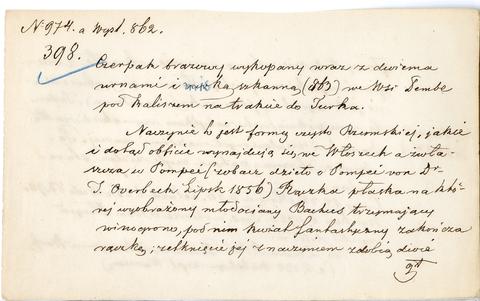 No 974. a Wyst. 862.
398.
Czerpak bronzowy wykopany wraz z dwiema
urnami i miską szklanną (863) we Wsi Dembe
pod Kaliszem na trakcie do Turka.
Naczynie to jest formy czysto Rzymskiej, jakie
i dotąd obficie wynajdują się we Włoszech a zwła-
szcza w Pompei (zobacz dzieło o Pompei von Dr
J. Overbeck Lipsk 1856) Rączka płaska na któ-
rej wyobrażony młodociany Bachus trzymający
winogrono, pod nim kwiat fantastyczny zakończa
rączkę; zetknięcie jej z naczyniem zdobią dwie